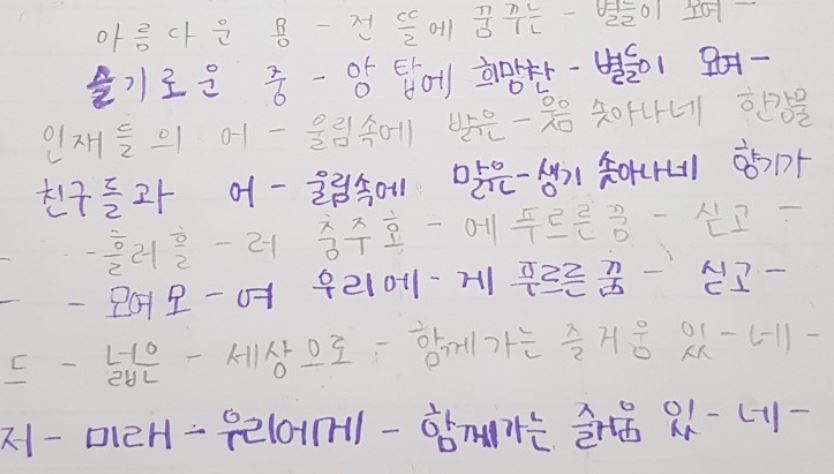 아름다운 용-전 뜰에 꿈꾸는-별들이 모여-
슬기로운 중-앙 탑에 희망찬-별들이 모여-
인재들의 어-울림속에 밝은-웃음 솟아나네 한강물
친구들과 어-울림속에 맑은-생기 솟아나네 향기가
- -흘러흘-러 충주호-에 푸르른꿈-싣고-
- -모여모-여 우리에-게 푸르른꿈-싣고-
드-넓은-세상으로-함께가는 즐거움 있-네-
저-미래-우리에게-함께가는 즐거움 있-네-